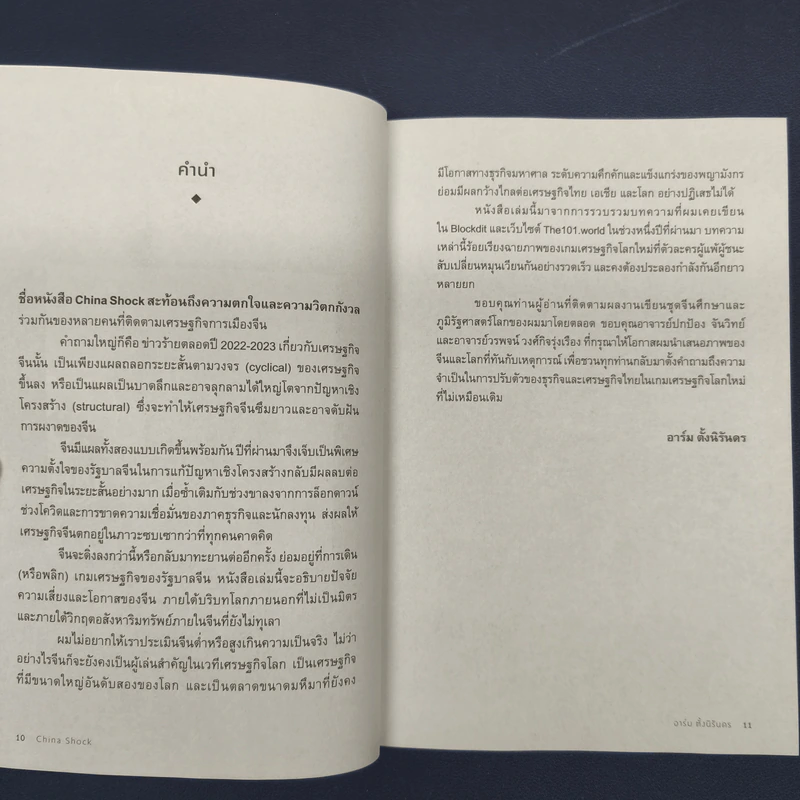 คำนำ
ชื่อหนังสือ China Shock สะท้อนถึงความตกใจและความวิตกกังวล
ร่วมกันของหลายคนที่ติดตามเศรษฐกิจการเมืองจีน
คำถามใหญ่ก็คือ ข่าวร้ายตลอดปี 2022-2023 เกี่ยวกับเศรษฐกิจ
จีนนั้น เป็นเพียงแผลถลอกระยะสั้นตามวงจร (cyclical) ของเศรษฐกิจ
ขึ้นลง หรือเป็นแผลเป็นบาดลึกและอาจลุกลามได้ใหญ่โตจากปัญหาเชิง
โครงสร้าง (structural) ซึ่งจะทำให้เศรษฐกิจจีนซึมยาวและอาจดับฝัน
การผงาดของจีน
จีนมีแผลทั้งสองแบบเกิดขึ้นพร้อมกัน ปีที่ผ่านมาจึงเจ็บเป็นพิเศษ
ความตั้งใจของรัฐบาลจีนในการแก้ปัญหาเชิงโครงสร้างกลับมีผลลบต่อ
เศรษฐกิจในระยะสั้นอย่างมาก เมื่อซ้ำเติมกับช่วงขาลงจากการล็อกดาวน์
ช่วงโควิดและการขาดความเชื่อมั่นของภาคธุรกิจและนักลงทุน ส่งผลให้
เศรษฐกิจจีนตกอยู่ในภาวะซบเซากว่าที่ทุกคนคาดคิด
จีนจะดิ่งลงกว่านี้หรือกลับมาทะยานต่ออีกครั้ง ย่อมอยู่ที่การเดิน
(หรือพลิก) เกมเศรษฐกิจของรัฐบาลจีน หนังสือเล่มนี้จะอธิบายปัจจัย
ความเสี่ยงและโอกาสของจีน ภายใต้บริบทโลกภายนอกที่ไม่เป็นมิตร
และภายใต้วิกฤตอสังหาริมทรัพย์ภายในจีนที่ยังไม่ทุเลา
ผมไม่อยากให้เราประเมินจีนต่ำหรือสูงเกินความเป็นจริง ไม่ว่า
อย่างไรจีนก็จะยังคงเป็นผู้เล่นสำคัญในเวทีเศรษฐกิจโลก เป็นเศรษฐกิจ
ที่มีขนาดใหญ่อันดับสองของโลก และเป็นตลาดขนาดมหึมาที่ยังคง
10 China Shock
มีโอกาสทางธุรกิจมหาศาล ระดับความคึกคักและแข็งแกร่งของพญามังกร
ย่อมมีผลกว้างไกลต่อเศรษฐกิจไทย เอเชีย และโลก อย่างปฏิเสธไม่ได้
หนังสือเล่มนี้มาจากการรวบรวมบทความที่ผมเคยเขียน
ใน Blockdit และเว็บไซต์ The101.world ในช่วงหนึ่งปีที่ผ่านมา บทความ
เหล่านี้ร้อยเรียงฉายภาพของเกมเศรษฐกิจโลกใหม่ที่ตัวละครผู้แพ้ผู้ชนะ
สับเปลี่ยนหมุนเวียนกันอย่างรวดเร็ว และคงต้องประลองกำลังกันอีกยาว
หลายยก
ขอบคุณท่านผู้อ่านที่ติดตามผลงานเขียนชุดจีนศึกษาและ
ภูมิรัฐศาสตร์โลกของผมมาโดยตลอด ขอบคุณอาจารย์ปกป้อง จันวิทย์
และอาจารย์วรพจน์ วงศ์กิจรุ่งเรือง ที่กรุณาให้โอกาสผมนำเสนอภาพของ
จีนและโลกที่ทันกับเหตุการณ์ เพื่อชวนทุกท่านกลับมาตั้งคำถามถึงความ
จำเป็นในการปรับตัวของธุรกิจและเศรษฐกิจไทยในเกมเศรษฐกิจโลกใหม่
ที่ไม่เหมือนเดิม
อาร์ม ตั้งนิรันดร
อาร์ม ตั้งนิรันดร 11